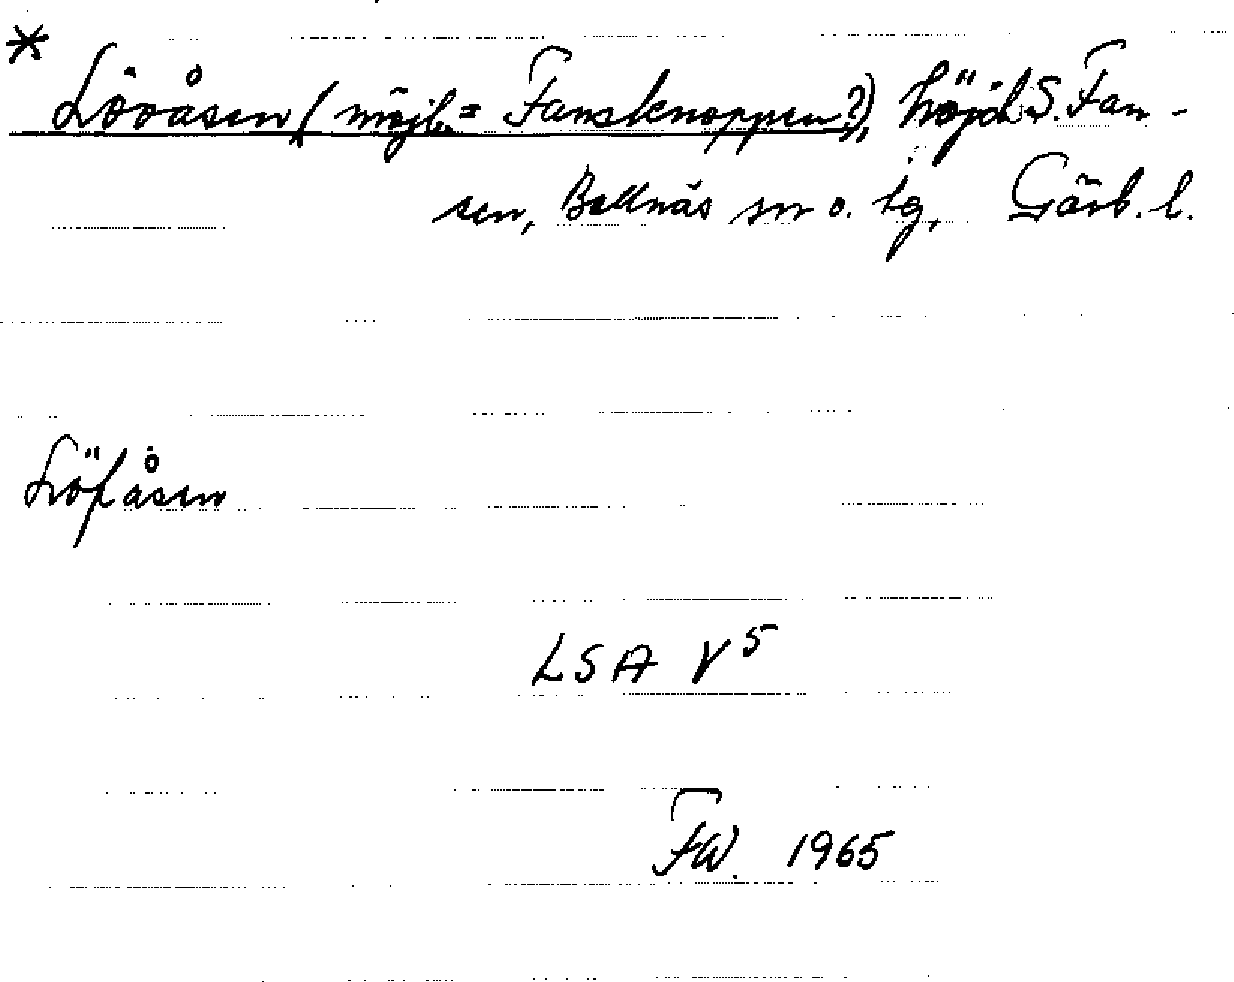 * Lövåsen (möjl. = Fansknoppen?), höjd S. Fan-
sen, Bollnäs sn o. tg, Gävb. l.
Löfåsen
LSA V5
FW. 1965